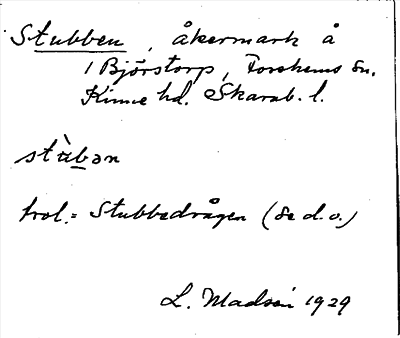 Stubben, åkermark å
1 Björstorp, Forshems sn.
Kinne hd. Skarab. l.
stùbən
trol. = Stubbedrågen (se d. o.)
L. Madsén 1929